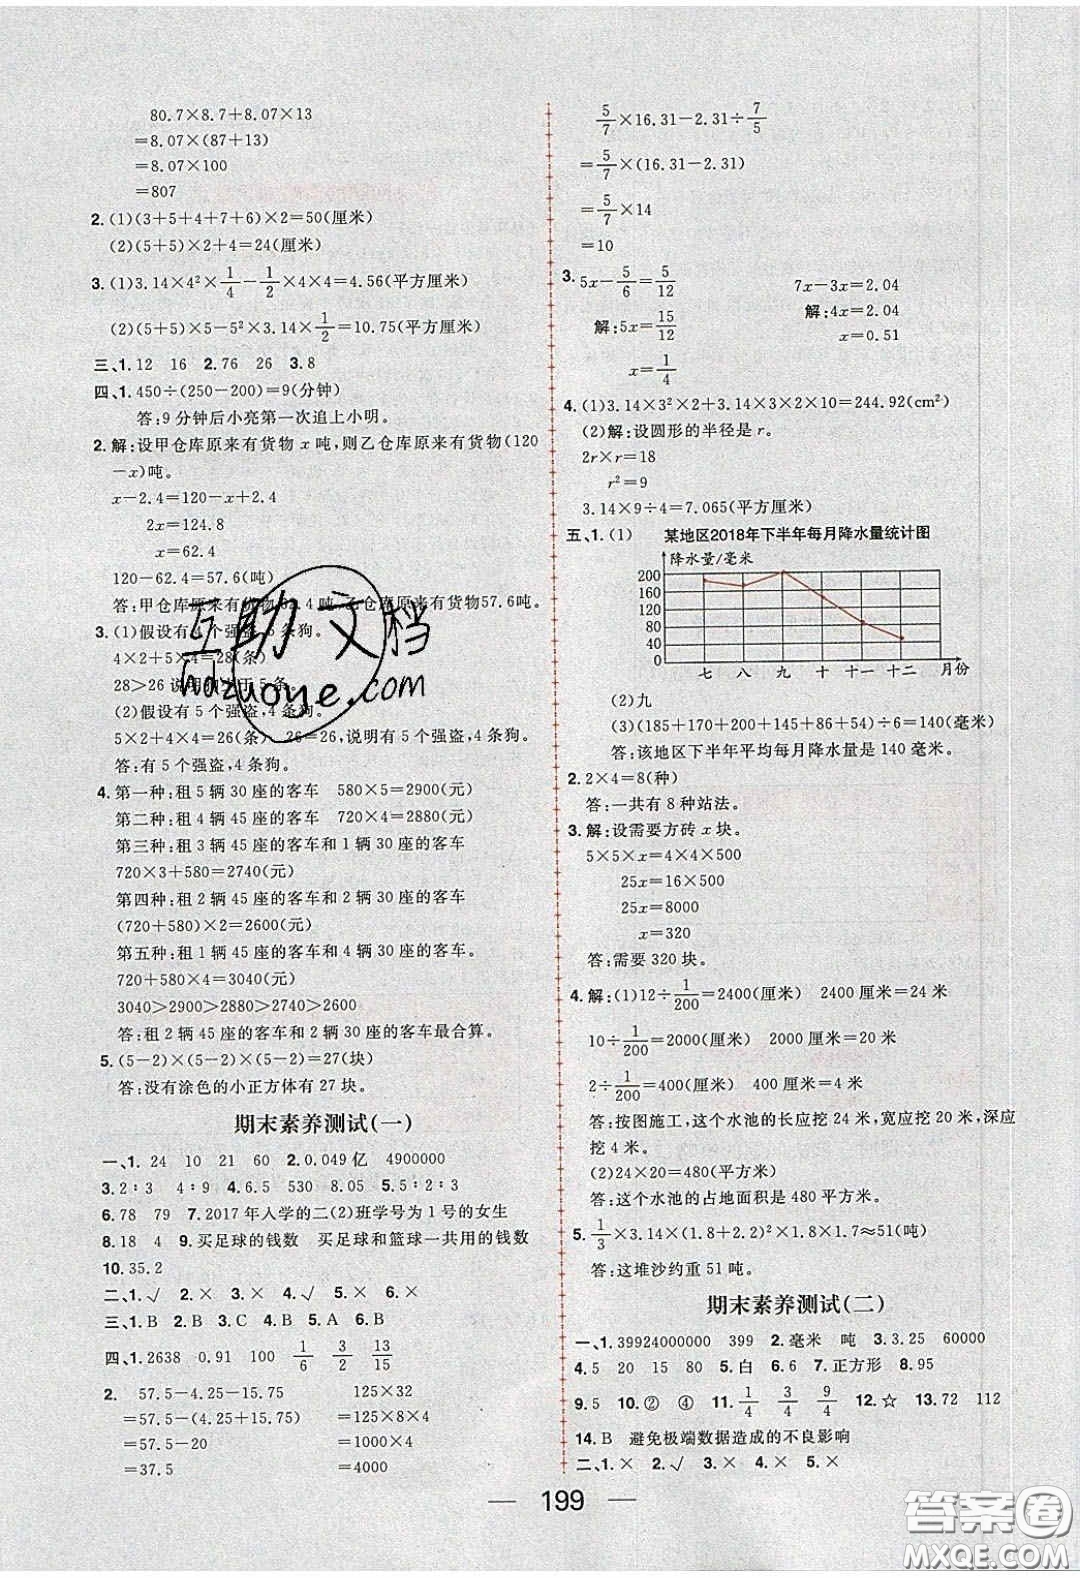 80.7×8.7+8.07×13
=8.07×(87+13)
=8.07×100
=807
2.(1)(3+5+4+7+6)×2=50(厘米)
(2)(5+5)×2+4=24(厘米)
3.(1)3.14×4²×1/4-1/2×4×4=4.56(平方厘米)
(2)(5+5)×5-5²×3.14×1/2=10.75(平方厘米)
三、1.12 16 2.76 26 3.8
四、1.450÷(250-200)=9(分钟)
答:9分钟后小亮第一次追上小明。
2.解:设甲仓库原来有货物x吨,则乙仓库原来有货物(120
-x)吨。
x-2.4=120-x+2.4
2x=124.8
x=62.4
120-62.4=57.6(吨)
答:甲仓库原来有货物62.4吨,乙仓库原来有货物57.6吨。
3.(1)假设有4个强盗,5条狗。
4×2+5×4=28(条)
28>26 说明狗少于5条。
(2)假设有5个强盗,4条狗。
5×2+4×4=26(条) 26=26,说明有5个强盗,4条狗。
答:有5个强盗,4条狗。
4.第一种:租5辆30座的客车 580×5=2900(元)
第二种:租4辆45座的客车 720×4=2880(元)
第三种:租3辆45座的客车和1辆30座的客车
720×3+580=2740(元)
第四种:租2辆45座的客车和2辆30座的客车
(720+580)×2=2600(元)
第五种:租1辆45座的客车和4辆30座的客车。
720+580×4=3040(元)
3040>2900>2880>2740>2600
答:租2辆45座的客车和2辆30座的客车最合算。
5.(5-2)×(5-2)×(5-2)=27(块)
答:没有涂色的小正方体有27块。
期末素养测试(一)
一、1.24 10 21 60 2.0.049亿 4900000
3.2:3 4:9 4.6.5 530 8.05 5.4:2:3
6.78 79 7.2017年入学的二(2)班学号为1号的女生
8.18 4 9.买足球的钱数 买足球和篮球一共用的钱数
10.35.2
二、1.√ 2.× 3.× 4.√ 5.× 6.×
三、1.B 2.B 3.C 4.B 5.A 6.B
四、1.2638 0.91 100 1/6 3/2 13/15
2. 57.5-4.25-15.75 125×32
=57.5-(4.25+15.75) =125×8×4
=57.5-20 =1000×4
=37.5 =4000
5/7×16.31-2.31÷7/5
=5/7×(16.31-2.31)
=5/7×14
=10
3. 5x-5/6=5/12 7x-3x=2.04
解:5x=15/12 解:4x=2.04
x=1/4 x=0.51
4.(1)3.14×3²×2+3.14×3×2×10=244.92(cm²)
(2)解:设圆形的半径是r。
2r×r=18
r²=9
3.14×9÷4=7.065(平方厘米)
五、1.(1) 某地区2018年下半年每月降水量统计图
降水量/毫米
200
160
120
80
40
0
七 八 九 十 十一 十二 月份
(2)九
(3)(185+170+200+145+86+54)÷6=140(毫米)
答:该地区下半年平均每月降水量是140毫米。
2.2×4=8(种)
答:一共有8种站法。
3.解:设需要方砖x块。
5×5×x=4×4×500
25x=16×500
25x=8000
x=320
答:需要320块。
4.解:(1)12÷1/200=2400(厘米) 2400厘米=24米
10÷1/200=2000(厘米) 2000厘米=20米
2÷1/200=400(厘米) 400厘米=4米
答:按图施工,这个水池的长应挖24米,宽应挖20米,深应
挖4米。
(2)24×20=480(平方米)
答:这个水池的占地面积是480平方米。
5.1/3×3.14×(1.8+2.2)²×1.8×1.7≈51(吨)
答:这堆沙约重51吨。
期末素养测试(二)
一、1.39924000000 399 2.毫米 吨 3.3.25 60000
4.5 20 15 80 5.白 6.6 7.正方形 8.95
9.5 10.② ④ 11.1/4 3/4 9/4 12.☆ 13.72 112
14.B 避免极端数据造成的不良影响
二、1.× 2.√ 3.× 4.× 5.×
— 199 —
互助文档
hdzuoye.com
答案圈
MXQE.COM